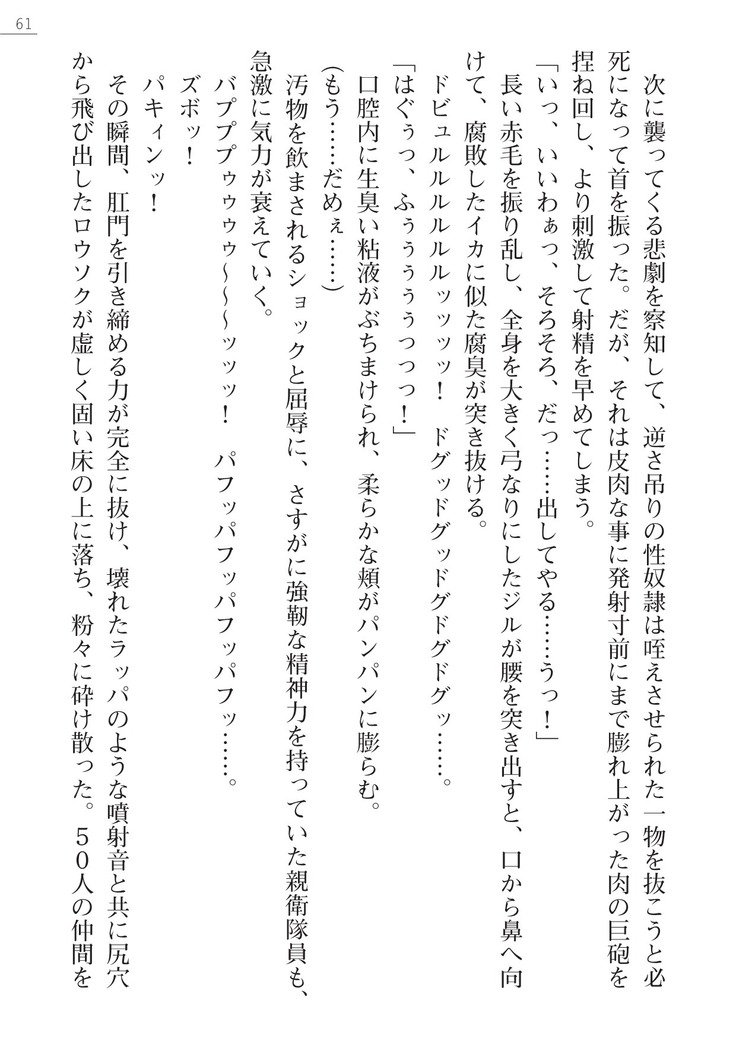 61
次に襲ってくる悲劇を察知して、逆さ吊りの性奴隷は咥えさせられた一物を抜こうと必
死になって首を振った。だが、それは皮肉な事に発射寸前にまで膨れ上がった肉の巨砲を
捏ね回し、より刺激して射精を早めてしまう。
「いっ、いいわぁっ、そろそろ、だっ……出してやる……うっ！」
長い赤毛を振り乱し、全身を大きく弓なりにしたジルが腰を突き出すと、口から鼻へ向
けて、腐敗したイカに似た腐臭が突き抜ける。
ドビュルルルルルルッッッッ！　ドグッドグッドグドグドグッ……。
「はぐぅっ、ふぅぅぅぅぅっっっ！」
口腔内に生臭い粘液がぶちまけられ、柔らかな頬がパンパンに膨らむ。
（もう……だめぇ……）
汚物を飲まされるショックと屈辱に、さすがに強靭な精神力を持っていた親衛隊員も、
急激に気力が衰えていく。
バププププゥゥゥゥ～～～ッッッ！　パフッパフッパフッパフッ……。
ズボッ！
パキィンッ！
その瞬間、肛門を引き締める力が完全に抜け、壊れたラッパのような噴射音と共に尻穴
から飛び出したロウソクが虚しく固い床の上に落ち、粉々に砕け散った。５０人の仲間を